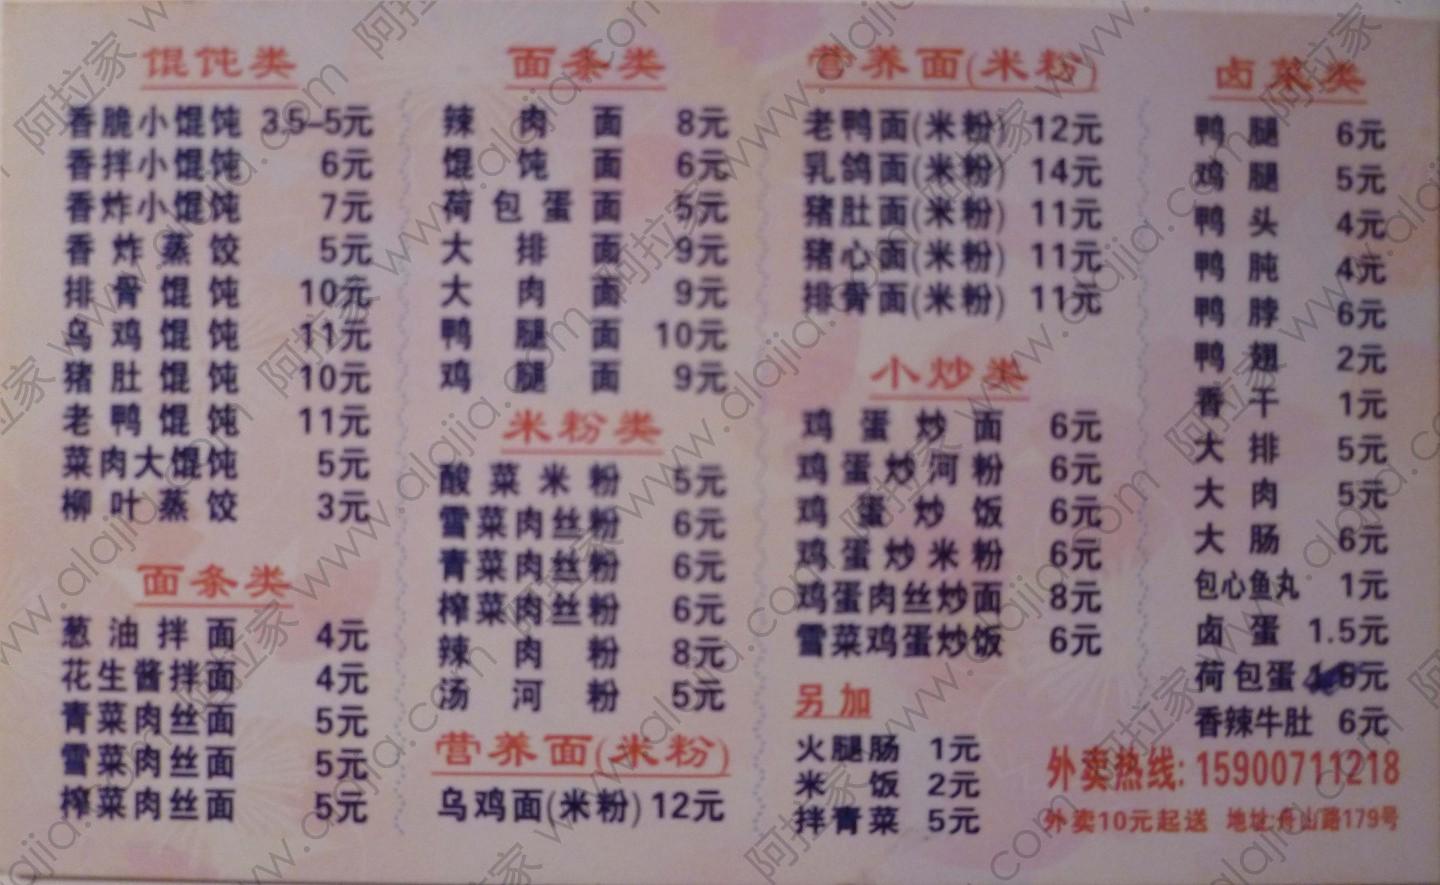 馄饨类
香脆小馄饨 3.5–5元
香拌小馄饨 6元
香炸小馄饨 7元
香炸蒸饺 5元
排骨馄饨 10元
乌鸡馄饨 11元
猪肚馄饨 10元
老鸭馄饨 11元
菜肉大馄饨 5元
柳叶蒸饺 3元
面条类
葱油拌面 4元
花生酱拌面 4元
青菜肉丝面 5元
雪菜肉丝面 5元
榨菜肉丝面 5元
面条类
辣肉面 8元
馄饨面 6元
荷包蛋面 5元
大排面 9元
大肉面 9元
鸭腿面 10元
鸡腿面 9元
米粉类
酸菜米粉 5元
雪菜肉丝粉 6元
青菜肉丝粉 6元
榨菜肉丝粉 6元
辣肉粉 8元
汤河粉 5元
营养面(米粉)
乌鸡面(米粉) 12元
营养面(米粉)
老鸭面(米粉) 12元
乳鸽面(米粉) 14元
猪肚面(米粉) 11元
猪心面(米粉) 11元
排骨面(米粉) 11元
小炒类
鸡蛋炒面 6元
鸡蛋炒河粉 6元
鸡蛋炒饭 6元
鸡蛋炒米粉 6元
鸡蛋肉丝炒面 8元
雪菜鸡蛋炒饭 6元
另加
火腿肠 1元
米饭 2元
拌青菜 5元
卤菜类
鸭腿 6元
鸡腿 5元
鸭头 4元
鸭肫 4元
鸭脖 6元
鸭翅 2元
香干 1元
大排 5元
大肉 5元
大肠 6元
包心鱼丸 1元
卤蛋 1.5元
荷包蛋 元
香辣牛肚 6元
外卖热线: 15900711218
外卖10元起送 地址:舟山路179号
阿拉家 www.alajia.com